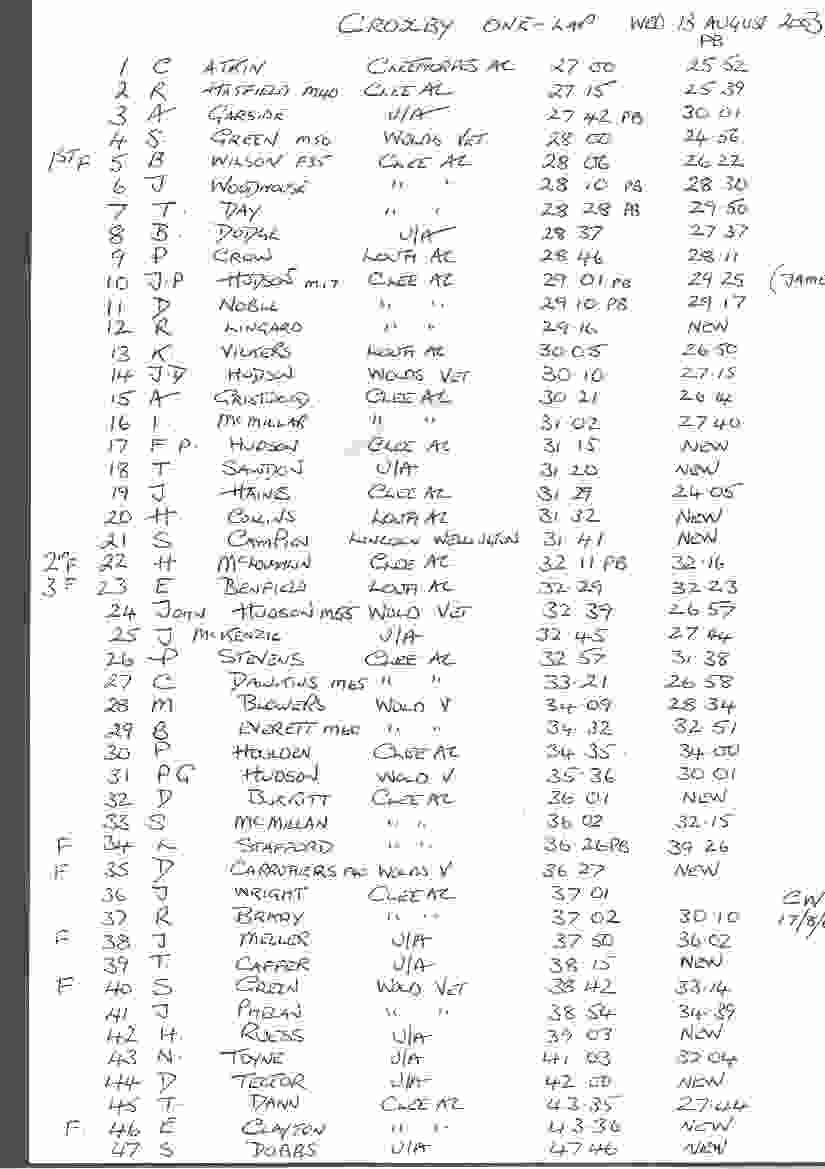 CROXBY ONE-LAP WED 13 AUGUST 2003
PB
1 C ATKIN CLEETHORPES AC 27 00 25 52
2 R HATSFIELD M40 CLEE AC 27 15 25 39
3 A GARSIDE U/A 27 42 PB 30 01
4 S. GREEN M50 WOLDS VET 28 00 24 56
1ST F 5 B WILSON F35 CLEE AC 28 06 26 22
6 J WOODHOUSE " " 28 10 PB 28 30
7 T. DAY " " 28 28 PB 29 50
8 B. DODGE U/A 28 37 27 37
9 P CROW LOUTH AC 28 46 28 11
10 J.P HUDSON M17 CLEE AC 29 01 PB 29 25 (JAME
11 D NOBLE " " 29 10 PB 29 17
12 R LINGARD " " 29.16 NEW
13 K VICKERS LOUTH AC 30.05 26 50
14 J.D HUDSON WOLDS VET 30.10 27.15
15 A CLEE AC 30 21
16 I. MCMILLAR " " 31 02 27 40
17 F P. HUDSON CLEE AC 31 15 NEW
18 T SAWDON U/A 31 20 NEW
19 J HAINS CLEE AC 31 29 24 05
20 H. COLLINS LOUTH AC 31 32 NEW
21 S CAMPION LINCOLN WELLINGTON 31 41 NEW
2nd F 22 H CLEE AC 32 11 PB 32.16
3 F 23 E BENFIELD LOUTH AC 32 29 32 23
24 JOHN HUDSON M65 WOLD VET 32 39 26 57
25 J MCKENZIE U/A 32 45 27 44
26 P STEVENS CLEE AC 32 57 31 38
27 C DAWKINS M65 " " 33.21 26 58
28 M BLOWERS WOLD V 34 09 28 34
29 B EVERETT M60 " " 34.32 32 51
30 P HOULDEN CLEE AC 34 35. 34.00
31 PG HUDSON WOLD V 35.36 30 01
32 D BURKITT CLEE AC 36 01 NEW
33 S MCMILLAN " " 36 02 32.15
F 34 K STAFFORD " " 36 26 PB 39 26
F 35 D CARRUTHERS WOLDS V 36 27 NEW
36 J WRIGHT CLEE AC 37 01
CW
37 R " " 37 02 30.10 17/8/
F 38 J MELLER U/A 37 50 36.02
39 T. CAFFER U/A 38.15 NEW
F 40 S GREEN WOLD VET 38 42 33.14
41 J PHELAN " " 38 54 34.39
42 H. RUESS U/A 39 03 NEW
43 N. TOYNE U/A 41.03 37 04
44 D TECTOR U/A 42.00 NEW
45 T. DANN CLEE AC 43.35 27.44
F. 46 E CLAYTON " " 43.36 NEW
47 S DOBBS U/A 47 46 NEW